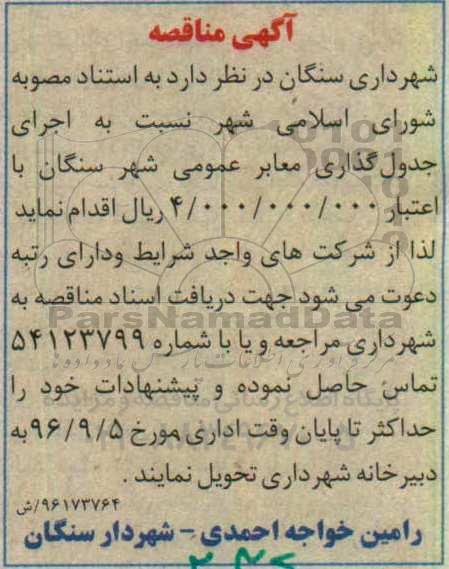 آگهی مناقصه
شهرداری سنگان در نظر دارد به استناد مصوبه
شورای اسلامی شهر نسبت به اجرای
جدول گذاری معابر عمومی شهر سنگان با
اعتبار ۴/۰۰۰/۰۰۰/۰۰۰ ریال اقدام نماید
لذا از شرکت های واجد شرایط ودارای رتبه
دعوت می شود جهت دریافت اسناد مناقصه به
ParsNamadData
شهرداری مراجعه و یا با شماره ۵۴۱۲۳۷۹۹
تماس حاصل نموده و پیشنهادات خود را
حداکثر تا پایان وقت اداری مورخ ۹۶/۹/۵ به
دبیرخانه شهرداری تحویل نمایند .
۹۶۱۷۳۷۶۴/ش
رامین خواجه احمدی - شهردار سنگان